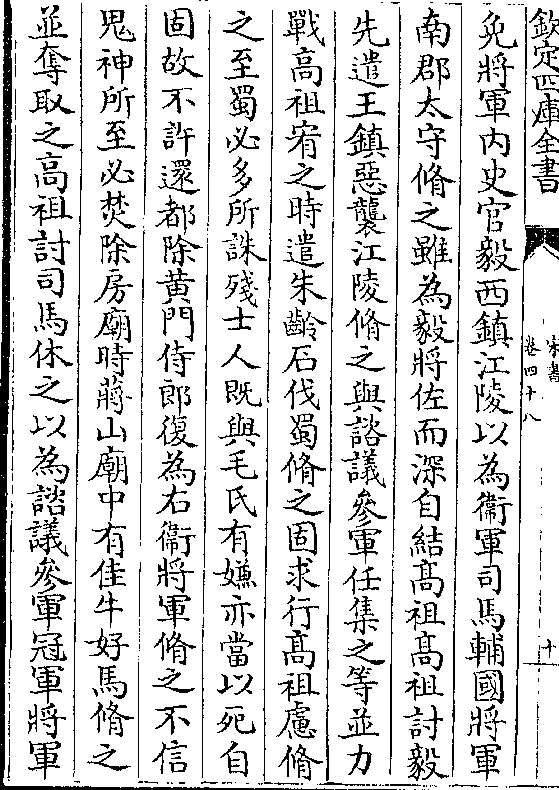 欽定四庫全書
宋書
卷四十八
十
免將軍内史官毅西鎮江陵以為衞軍司馬輔國將軍
南郡太守脩之雖為毅將佐而深自結髙祖髙祖討毅
先遣王鎮惡襲江陵脩之與諮議參軍任集之等並力
戰高祖宥之時遣朱齡石伐蜀脩之固求行髙祖慮脩
之至蜀必多所誅殘士人既與毛氏有嫌亦當以死自
固故不許還都除黄門侍郎復為右衞將軍脩之不信
鬼神所至必焚除房廟時蔣山廟中有佳牛好馬脩之
並奪取之高祖討司馬休之以為諮議參軍冠軍將軍